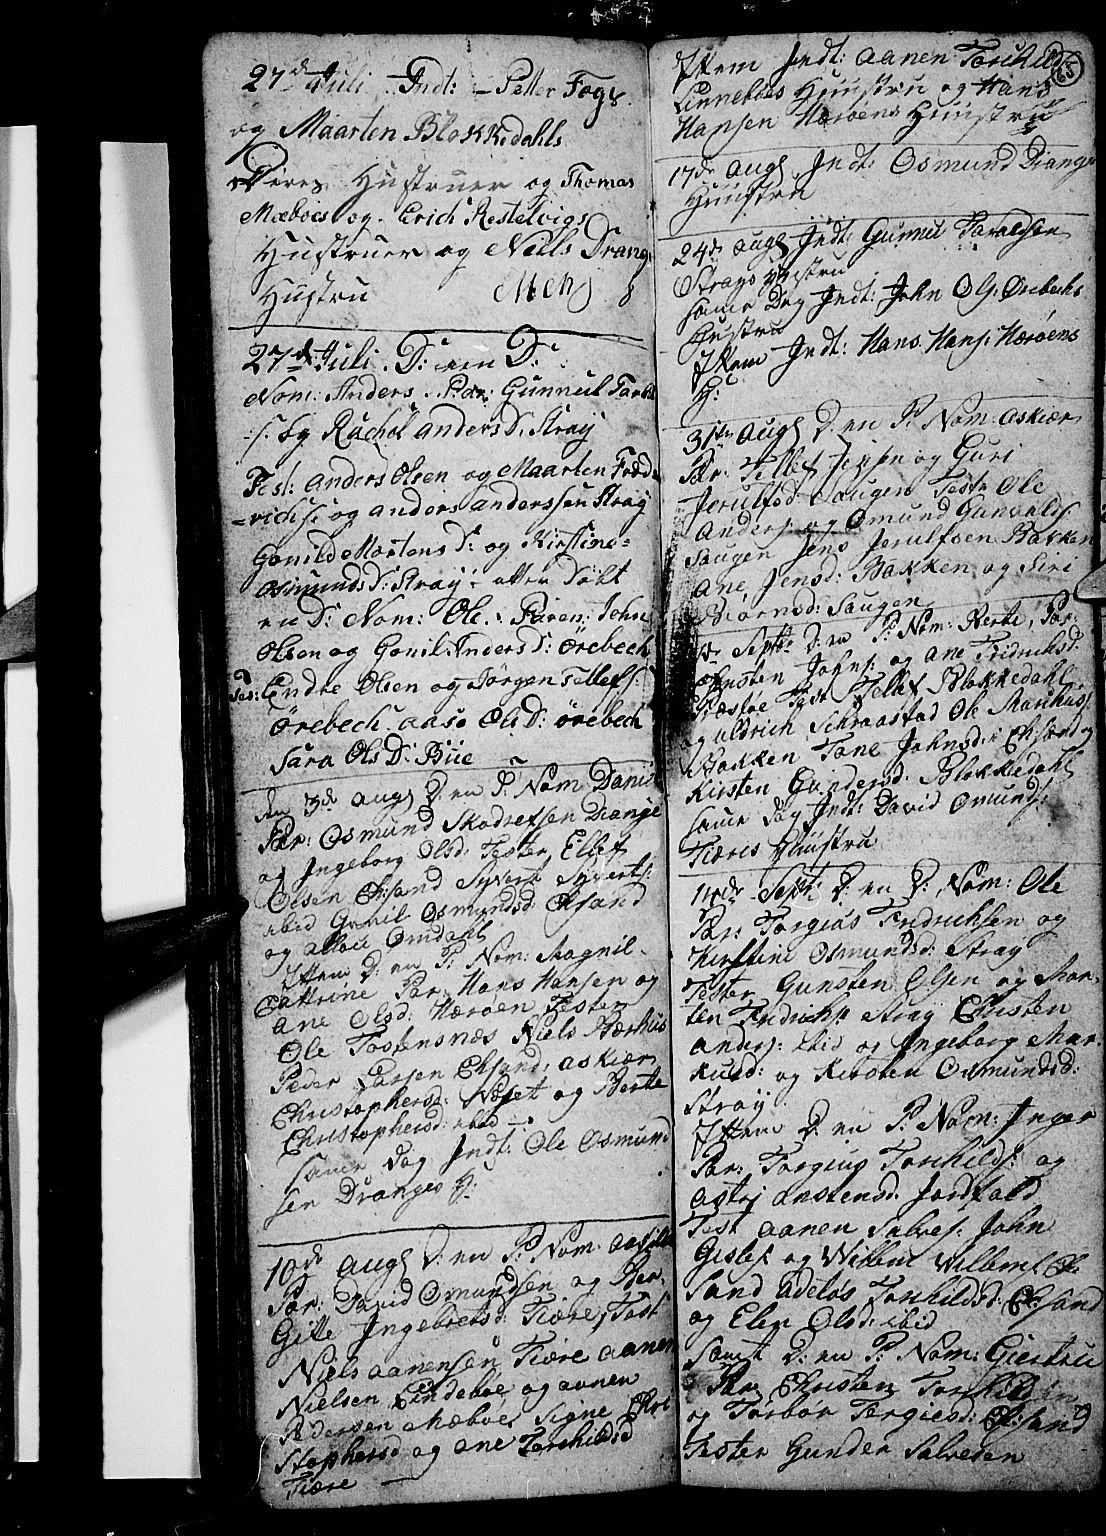 27de Juli. Indt: Petter Fogs
og Maarten Blokkedahls
Deres Hustruer og Thomas
Mæbøes og Erich Restelvigs
Hustruer og Nells Drangs
Hustru
27de Juli. D: een D:
Nom: Anders. Par: Gunneul Tarald
:s: og Rachel anders D. Stray
Test: anders Olsen og Maarten Fræde
=richs: og anders anderssen Stray
Gonild Mortens D: og Kirstine=
Osmunds D: Stray - atter Døbt
en D: Nom: Ole. Paren: John
Olsen og Gonil Anders D: Örebech
Tes: Endre Olsen og Jörgen Tellefs:
Örebech aase Ols D: örebech
Sara Ols D: Biie
den 3de Aug D: en P: Nom Daniel
Par: Osmund Skadretsen Drange
og Ingeborg Olsd: Tester Ellef
Olsen Chsand Syvert Syverts:
ibid Gunil Osmundsd Chsand
og Omdahl
Ittem D: en P: Nom: Magnil
Cattrine Par: Hans Hansen og
Ane Olsd: Hærøen Tester
Ole Tostensnæs Niels Aarhus
Peder Larsen Chsand, Askiær
Christophersd: og Berte
Christophersd: ibid
samme Dag Indt: Ole Osmund
sen Dranges H:
10de Aug D: en P: Nom: Aasille
Par: David Osmundsen og Ber
Gitte Ingebretsd: Tiære, Test
Niels aanensen Tiære aanen
Nielsen Lindebøe og aanen
Pedersen Mæbøe Signe Chri
Stophersd og Ane Torchildsd
Tiære
85
Ittem Indt: aanen Torchilds
Linnebøes Huustru og Hans
Hansen Hærøens Huustru
17de Aug Indt: Osmund Drange
Huustru
24de Aug Indt: Gunnu Taraldsen
Strays Hustru
samme Dag Indt: John Ols: Örebechs
Hustru
Ittem Indt: Hans Hans: Hærøens
H:
31te Aug D: en P: Nom: Askiær
Par: Tellef Jensen og Guri
Jerulfsd: Saugen Test: Ole
Anders: og Osmund Gunvalds
Saugen Jens Jerulfsen Bakken
Ane Jensd: Bakken og Siri
Biørnsd: Saugen
Sept: D: en P: Nom: Berte, Par:
Johns: og Ane Fridrichsd:
Test Tellef Blokkedahl
og uldrich Schraastad Ole Marchus:
Bakken Tone Johnsd: Chsand og
Kirsten Gundersd: Blokkedahl
samme Dag Indt: David Osmunds:
Tiæres Huustru
14de Sept: D: en D: Nom: Ole
Par: Torgius Fridrichsen og
Kirstine Osmundsd: Stray
Tester Gunsten Olsen og Mor
ten Fridrichs: Stray Christen
anders: ibid og Ingeborg Mar
kusd: og Kirsten Osmundsd:
Stray
Ittem D: en P: Nom: Inger
Par: Torgius Torchilds: og
Astri anstensd:
Test aanen Salves: John
Gislef: og Willem Wilhems: Ch
Sand Adeløs Torchildsd: Chsand
og Elen Olsd: ibid
Samt D: en P: Nom: Giertru
Par: Christen Torchilds:
og Torbør Tergiesd: Ch:sand
Tester Gunder Salvesen